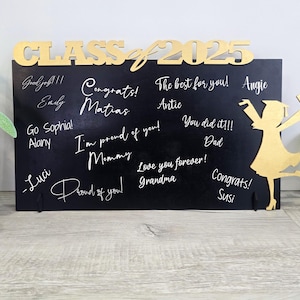 CLASS of 2025
Good job!!!
Emily
Congrats!
Matias
The best for you!
Avitie
Angie
Go Sophia!
Alany
I'm proud of you!
Mommy
You did it!!!
Dad
Love you forever!
Grandma
-Luci
Proud of you!
Congrats!
Susi